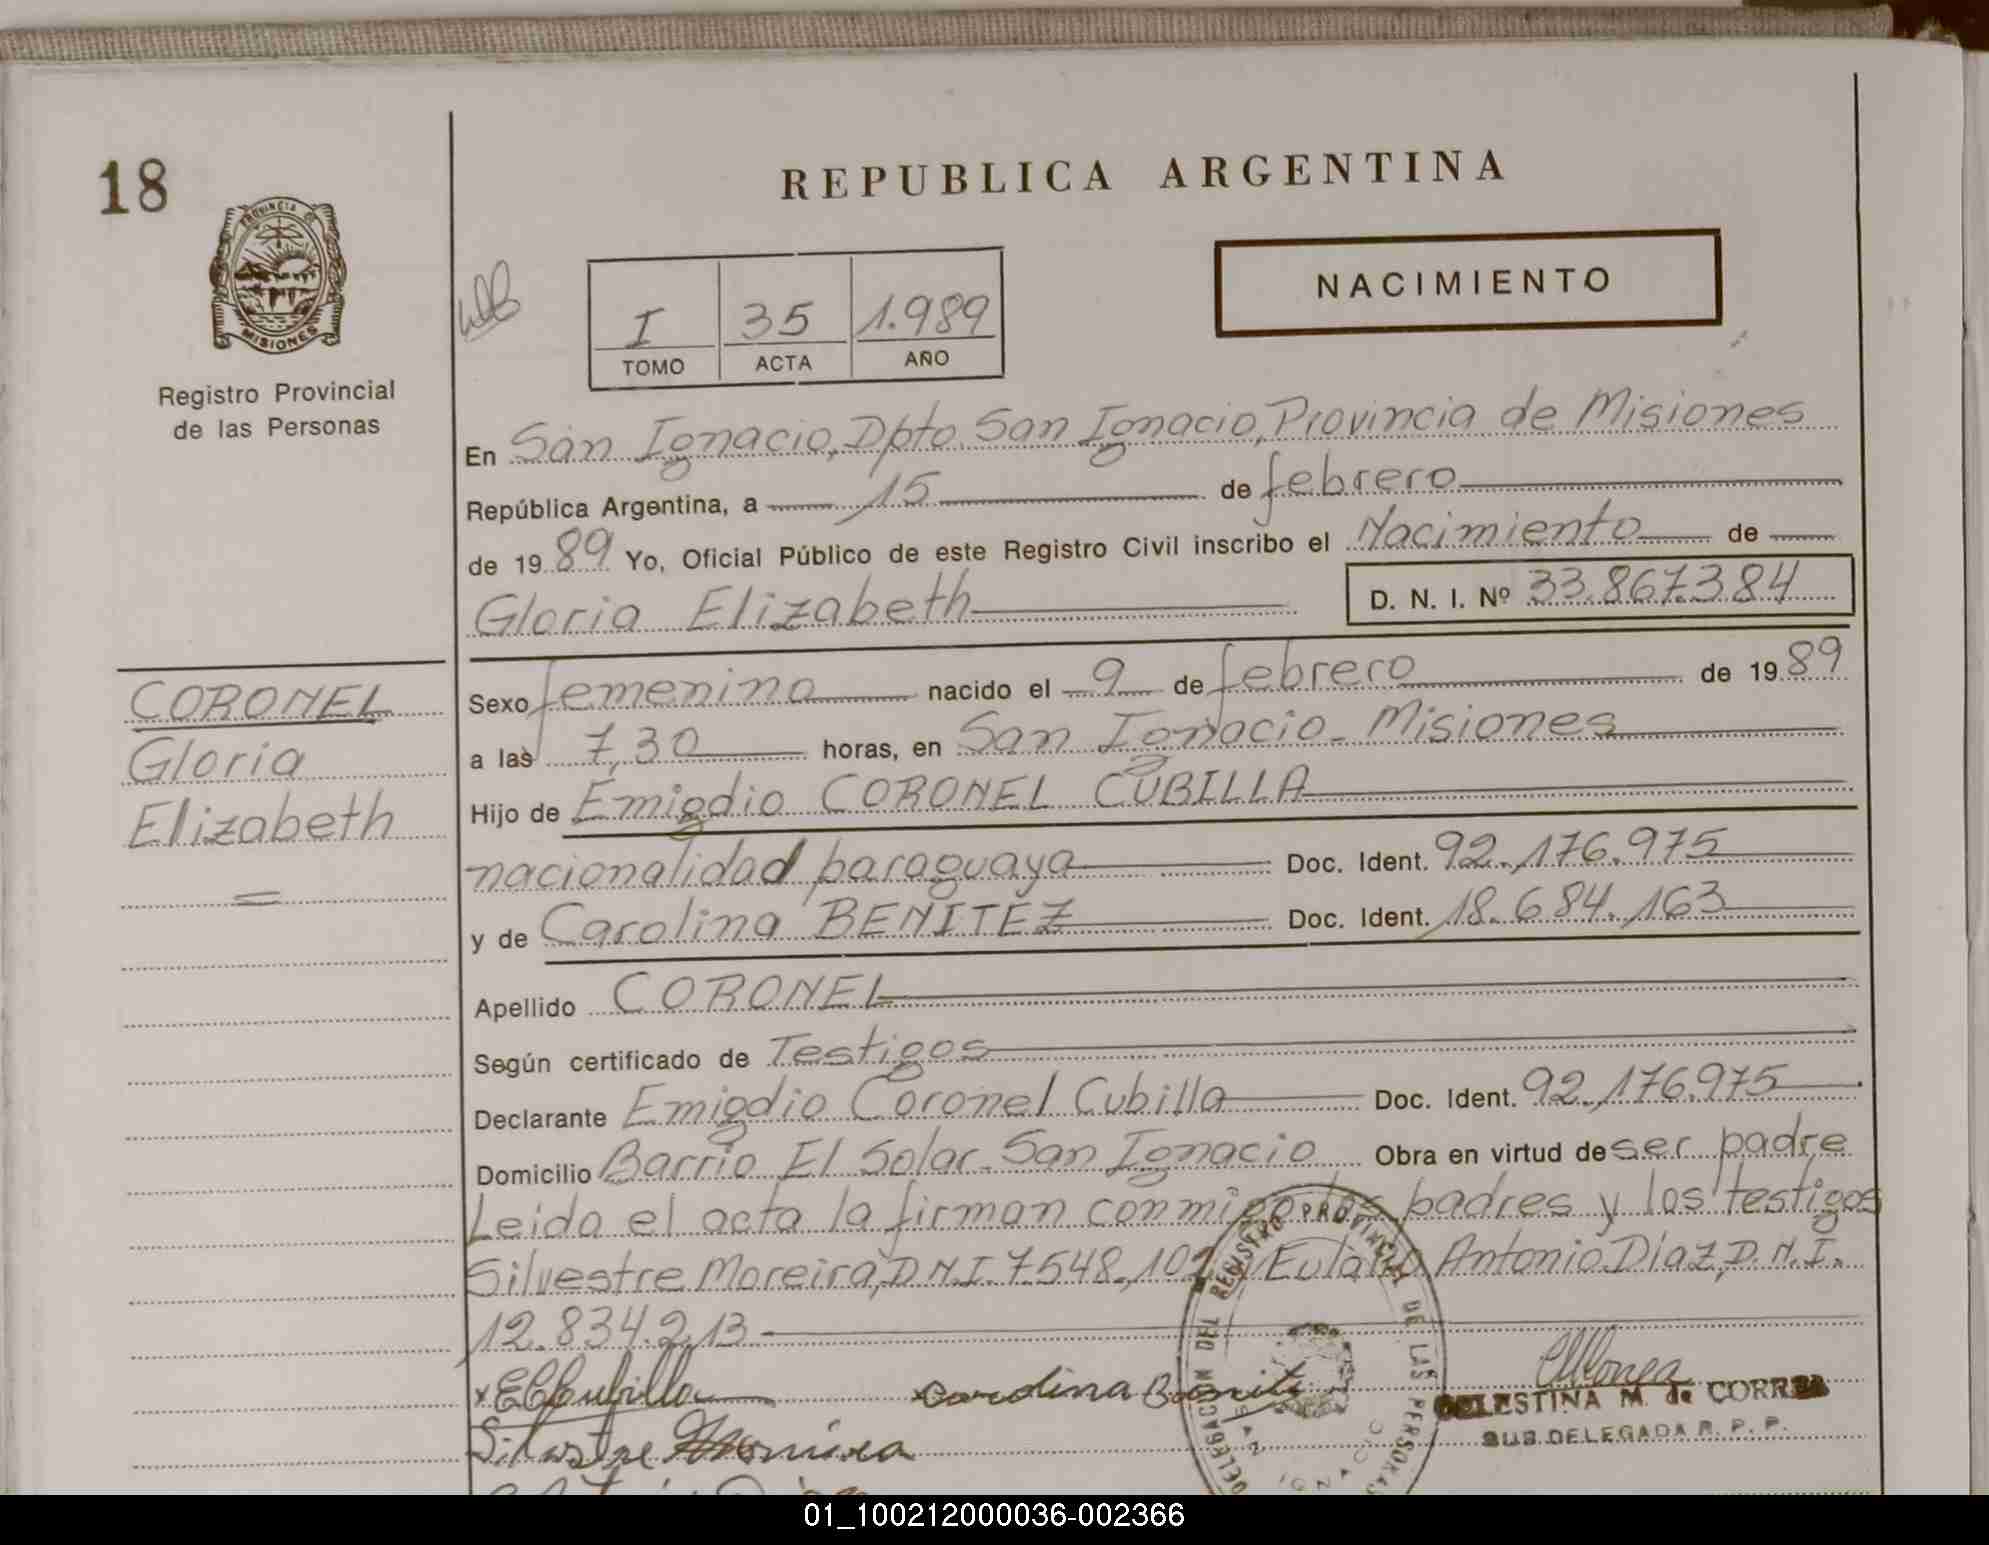 18
PROVINCIA DE
MISIONES
Registro Provincial
de las Personas
REPUBLICA ARGENTINA
NACIMIENTO
I 35 1.989
TOMO ACTA AÑO
En San Ignacio, Dpto. San Ignacio, Provincia de Misiones
República Argentina, a 15 de febrero
de 1989 Yo, Oficial Público de este Registro Civil inscribo el Nacimiento de
Gloria Elizabeth D. N. I. Nº 33.867.384
CORONEL
Gloria
Elizabeth
Sexo femenino nacido el 9 de febrero de 1989
a las 7,30 horas, en San Ignacio - Misiones
Hijo de Emigdio CORONEL CUBILLA
nacionalidad paraguaya Doc. Ident. 92.176.975
y de Carolina BENITEZ Doc. Ident. 18.684.163
Apellido CORONEL
Según certificado de Testigos
Declarante Emigdio Coronel Cubilla Doc. Ident. 92.176.975
Domicilio Barrio El Solar - San Ignacio Obra en virtud de ser padre
Leida el acta la firman conmigo los padres y los testigos
Silvestre Moreira, D.N.I. 7548.101 y Eulalio Antonio Diaz, D.N.I.
12.834.213
ECCubilla Carolina Benite
Silvestre Moreira
DELEGACION DEL REGISTRO PROVINCIAL DE LAS PERSONAS
SAN IGNACIO
CELESTINA M. de CORREA
SUB DELEGADA R. P. P.
01_100212000036-002366